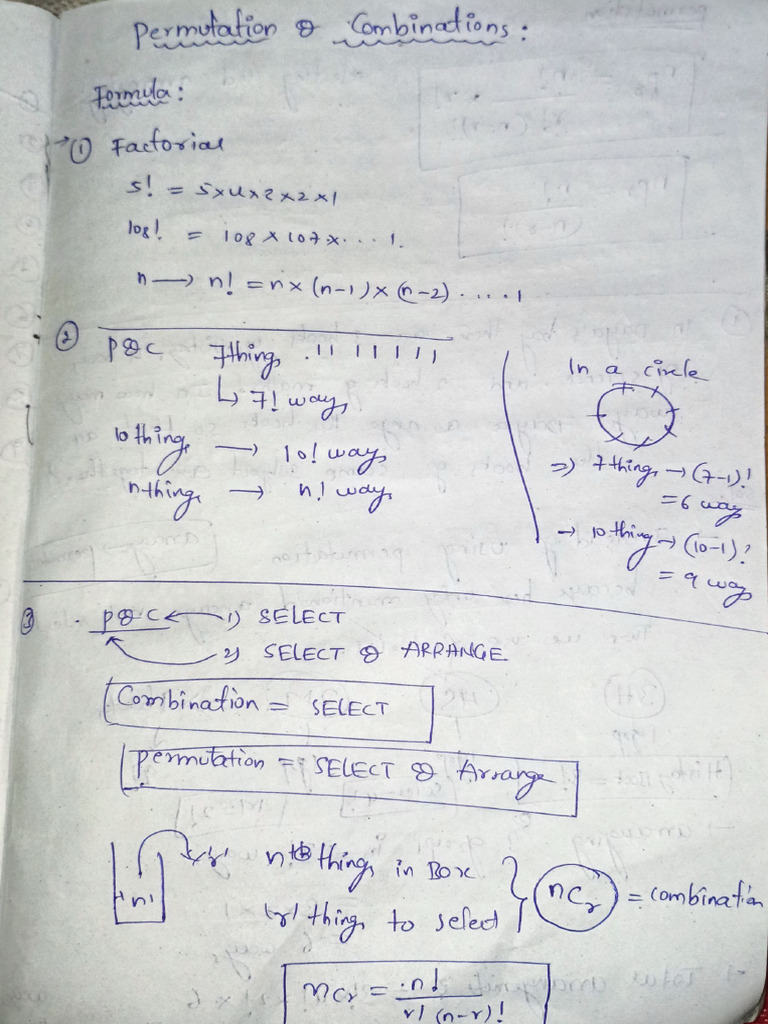 Permutation & Combinations :
Formula :
① Factorial
5! = 5x4x2x2x1
108! = 108 x 107 x . . . 1.
n → n! = n x (n-1) x (n-2) . . . . 1
② P&C 7things
↳ 7! ways
10 things → 10! ways
n things → n! ways
In a circle
⇒ 7things → (7-1)!
= 6 ways
→ 10things → (10-1)!
= 9 ways
③ P&C ← 1) SELECT
2) SELECT & ARRANGE
Combination = SELECT
Permutation = SELECT & Arrange
'n' 'r' n things in Box
'r' things to select
nCr = combination
nCr = n! / r! (n-r)!